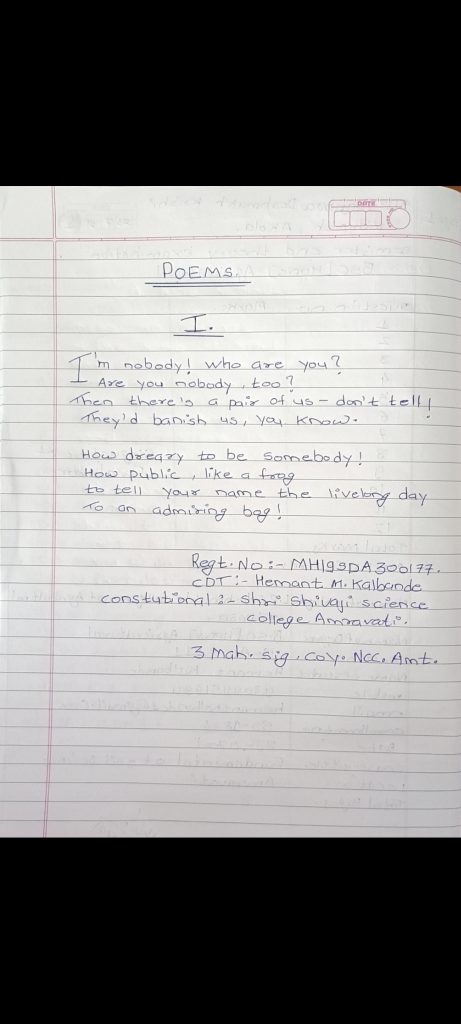 DATE
POEMS.
I.
I'm nobody! who are you?
Are you nobody, too?
Then there's a pair of us - don't tell!
They'd banish us, you know.
How dreary to be somebody!
How public, like a frog
to tell your name the livelong day
To an admiring bog!
Regt. No :- MH19SDA300177.
CDT :- Hemant M. Kalbande
constutional :- Shri Shivaji science
college Amravati.
3 Mah. sig. coy. NCC. Amt.